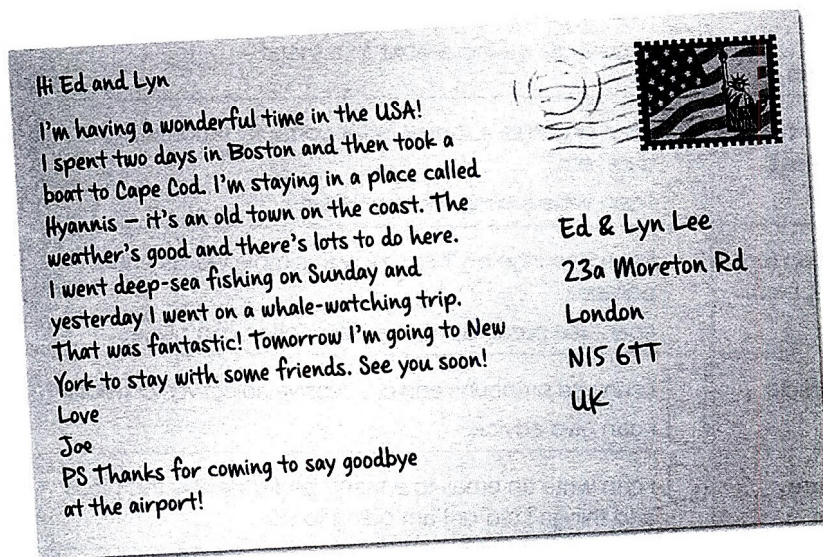 Hi Ed and Lyn
I'm having a wonderful time in the USA!
I spent two days in Boston and then took a
boat to Cape Cod. I'm staying in a place called
Hyannis – it's an old town on the coast. The
weather's good and there's lots to do here.
I went deep-sea fishing on Sunday and
yesterday I went on a whale-watching trip.
That was fantastic! Tomorrow I'm going to New
York to stay with some friends. See you soon!
Love
Joe
PS Thanks for coming to say goodbye
at the airport!
Ed & Lyn Lee
23a Moreton Rd
London
N15 6TT
UK